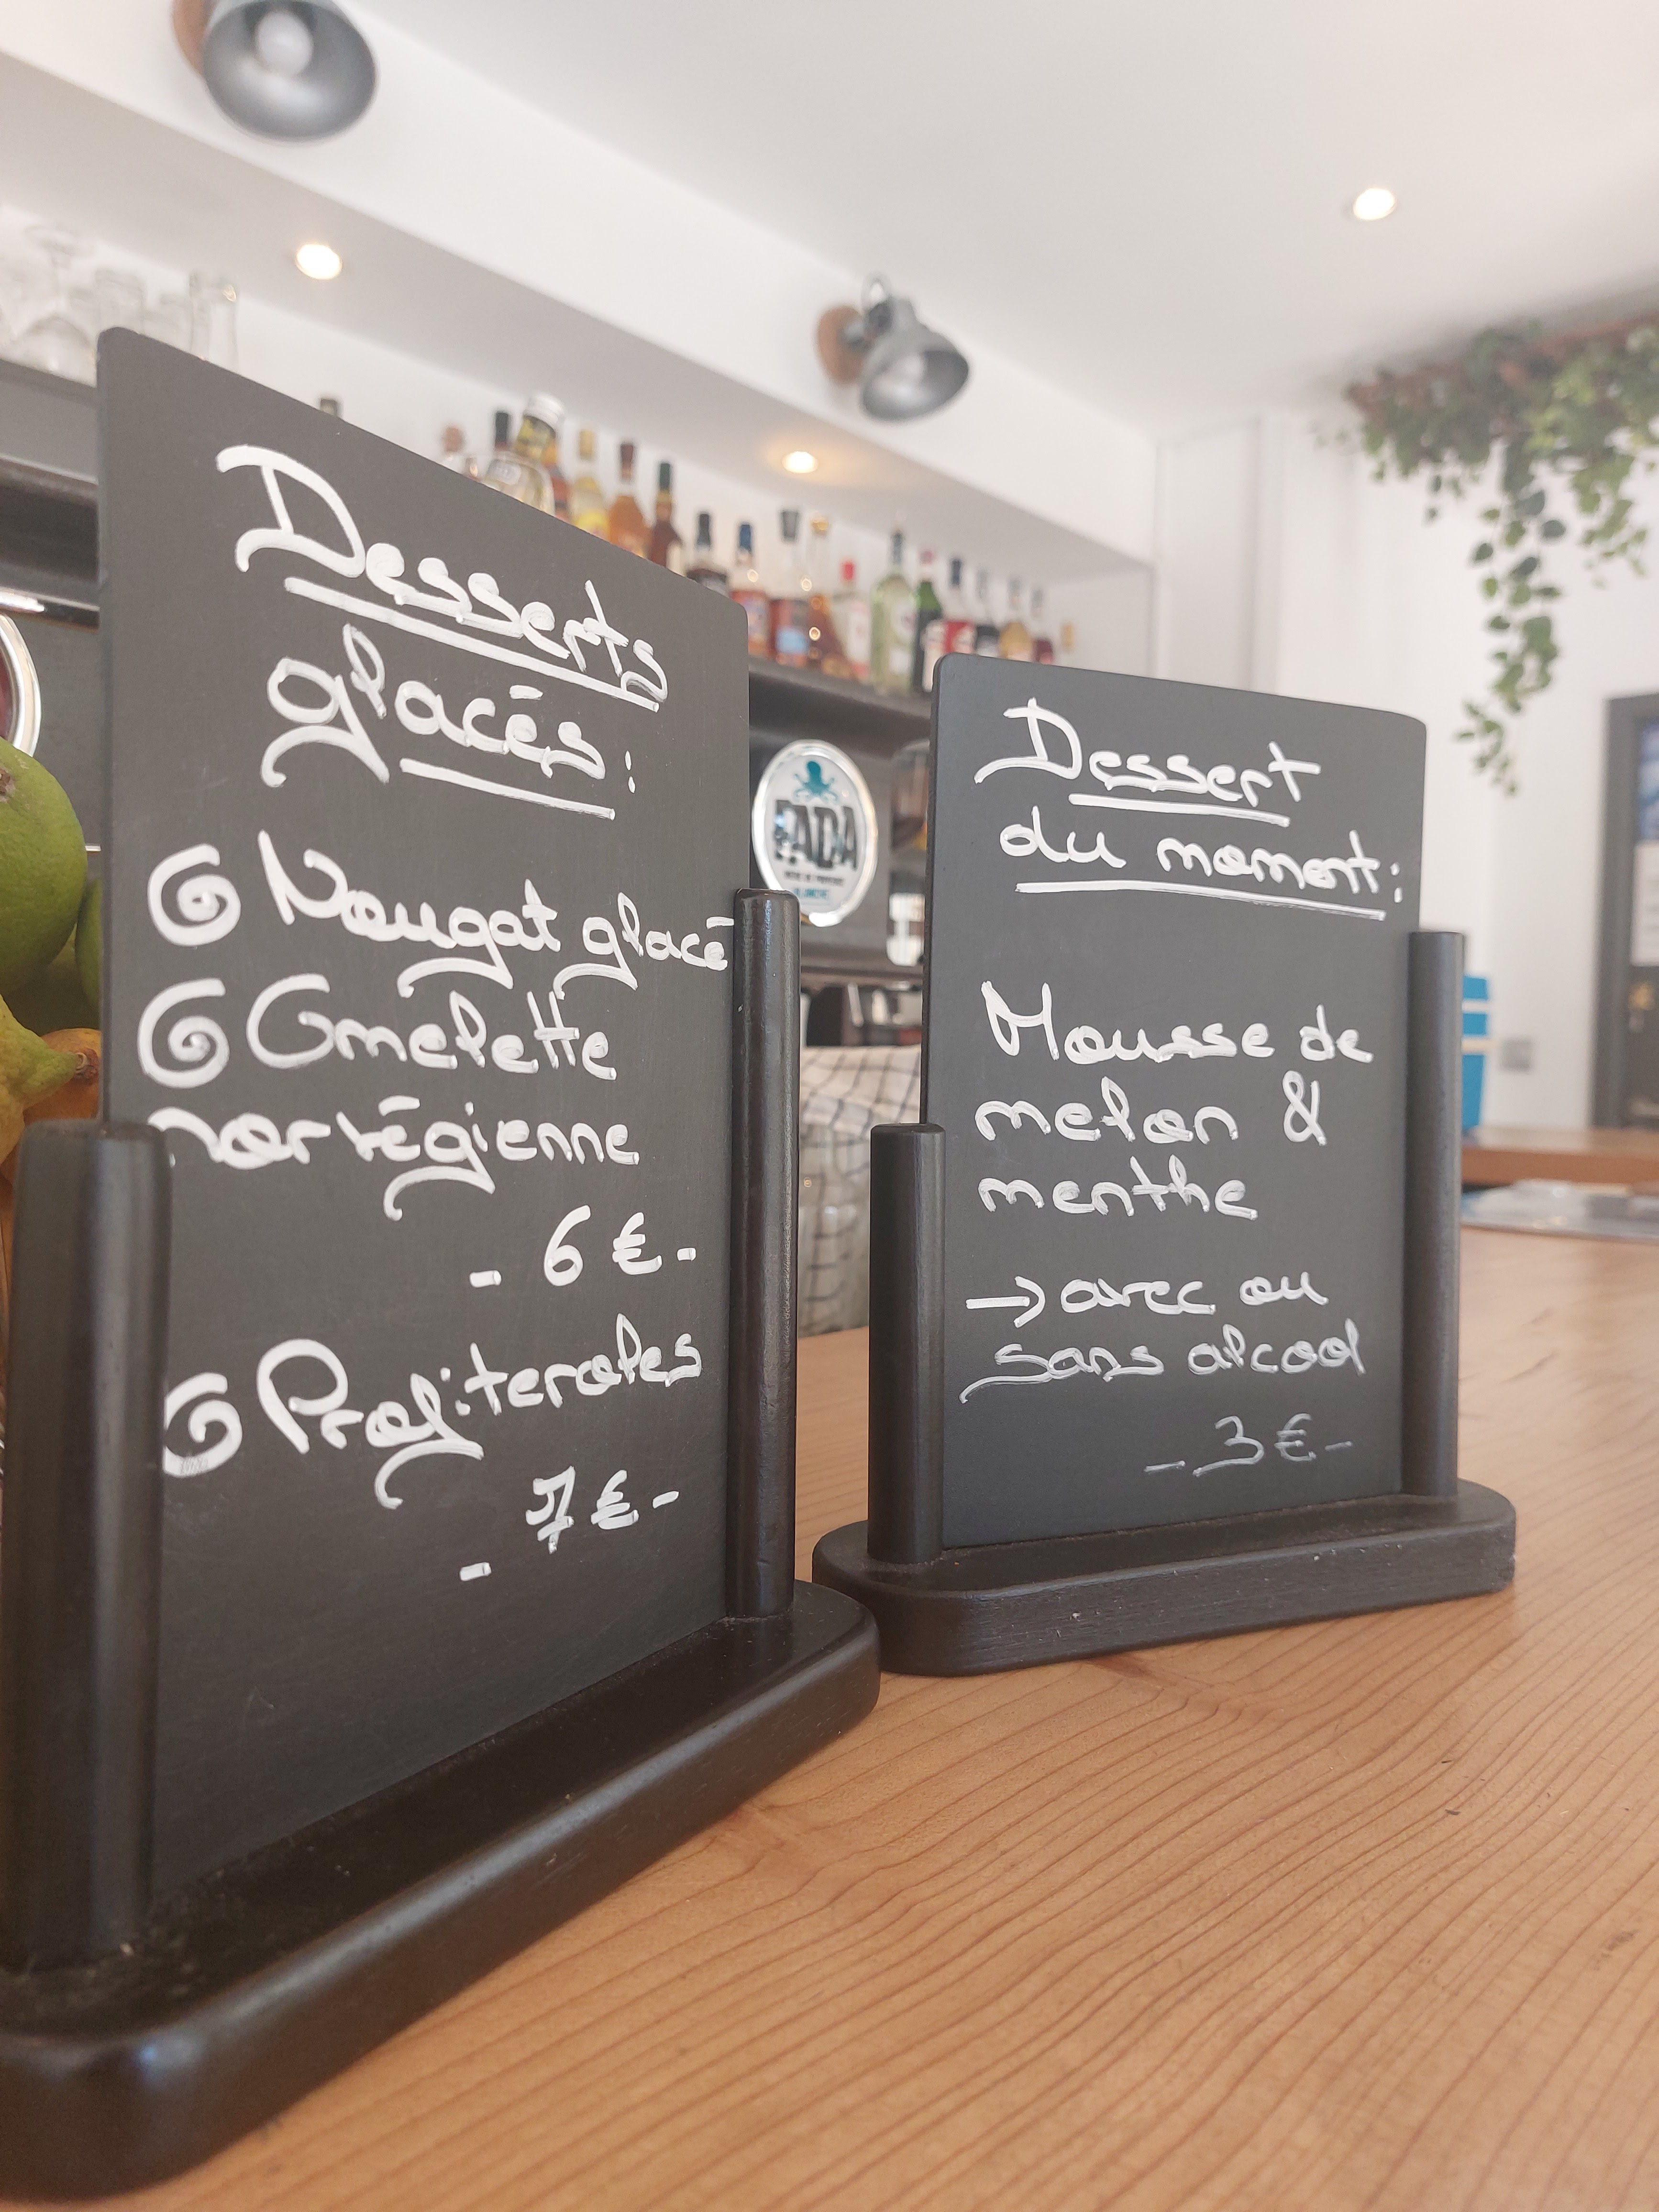 Desserts
glacés :
Nougat glacé
Omelette
norvégienne
- 6 € -
Profiteroles
- 7 € -
Dessert
du moment :
Mousse de
melon &
menthe
→ avec ou
sans alcool
- 3 € -
PADA